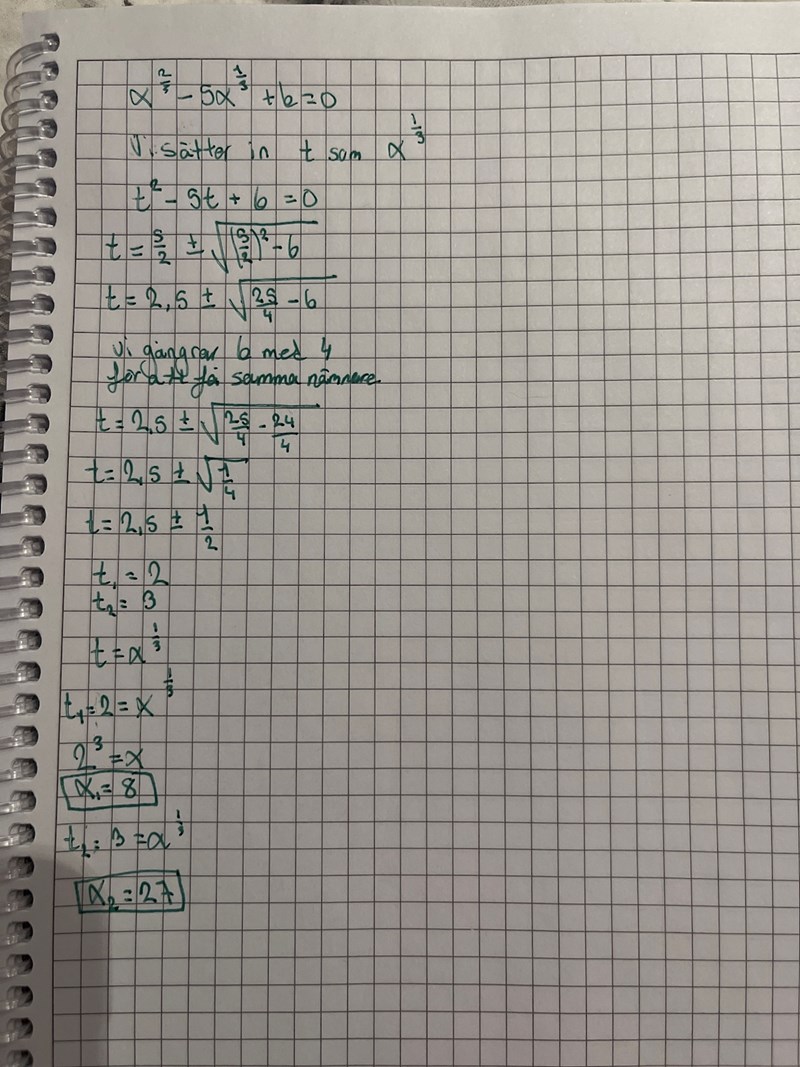 x^(2/3) - 5x^(1/3) + 6 = 0
Vi sätter in t som x^(1/3)
t² - 5t + 6 = 0
t = 5/2 ± √((5/2)² - 6)
t = 2,5 ± √(25/4 - 6)
Vi gångrar 6 med 4
för att få samma nämnare.
t = 2,5 ± √(25/4 - 24/4)
t = 2,5 ± √(1/4)
t = 2,5 ± 1/2
t₁ = 2
t₂ = 3
t = x^(1/3)
t₁ = 2 = x^(1/3)
2³ = x
x₁ = 8
t₂ = 3 = x^(1/3)
x₂ = 27